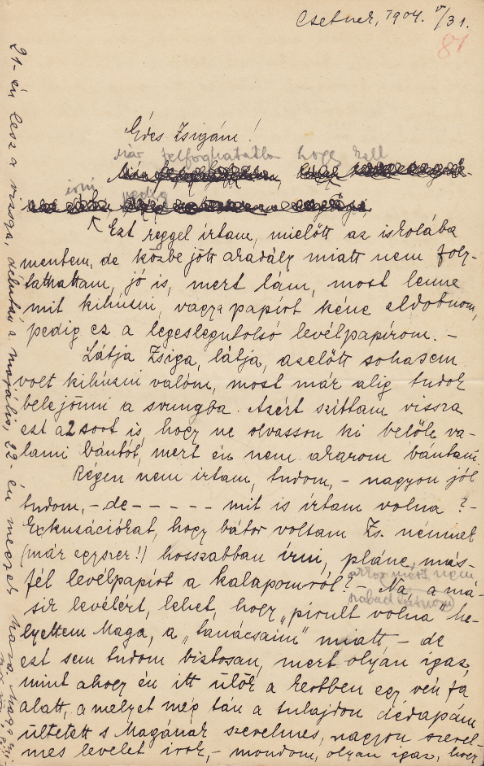 Csetnek, 1904. V/31.
81
Édes Zsigám!
már felfoghatatlan hogy kell
irni pedig
Ezt reggel írtam, mielőtt az iskolába
mentem, de közbe jött akadály miatt nem foly-
tathattam, jó is, mert lám, most lenne
mit kihúzni, vagy a papírt kéne eldobnom,
pedig ez a legeslegutolsó levélpapírom. –
Látja Zsiga, látja, azelőtt sohasem
volt kihúzni valóm, most már alig tudok
belejönni a svungba. Azért szíttam vissza
ezt a 2 sort is, hogy ne olvasson ki belőle va-
lami bántót, mert én nem akarom bántani.
Régen nem írtam, tudom, – nagyon jól
tudom, – de – – – – – mit is írtam volna? –
Exkusációkat, hogy bátor voltam Zs. némmel
(már egyszer!) hosszabban irni, pláne, más-
fél levélpapírt a kalapomról? – Na, a má-
sik levélért, lehet, hogy „pirult volna” he-
lyettem Maga, a „tanácsaim” miatt, – de
ezt sem tudom biztosan, mert olyan igaz,
mint ahogy én itt ülök a kertben egy vén fa
alatt, a melyet még tán a tulajdon dédapám
ültetett s Magának szerelmes, nagyon szerel-
mes levelet irok, – mondom, olyan igaz, hogy
21-én lesz a vizsga, délután a majális, 22-én megyek haza